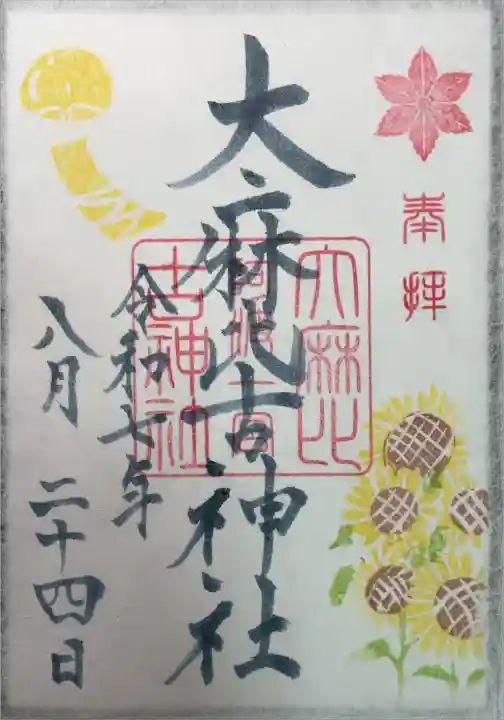 奉拝
大麻比古神社
大麻比
古神社
令和七年
八月二十四日